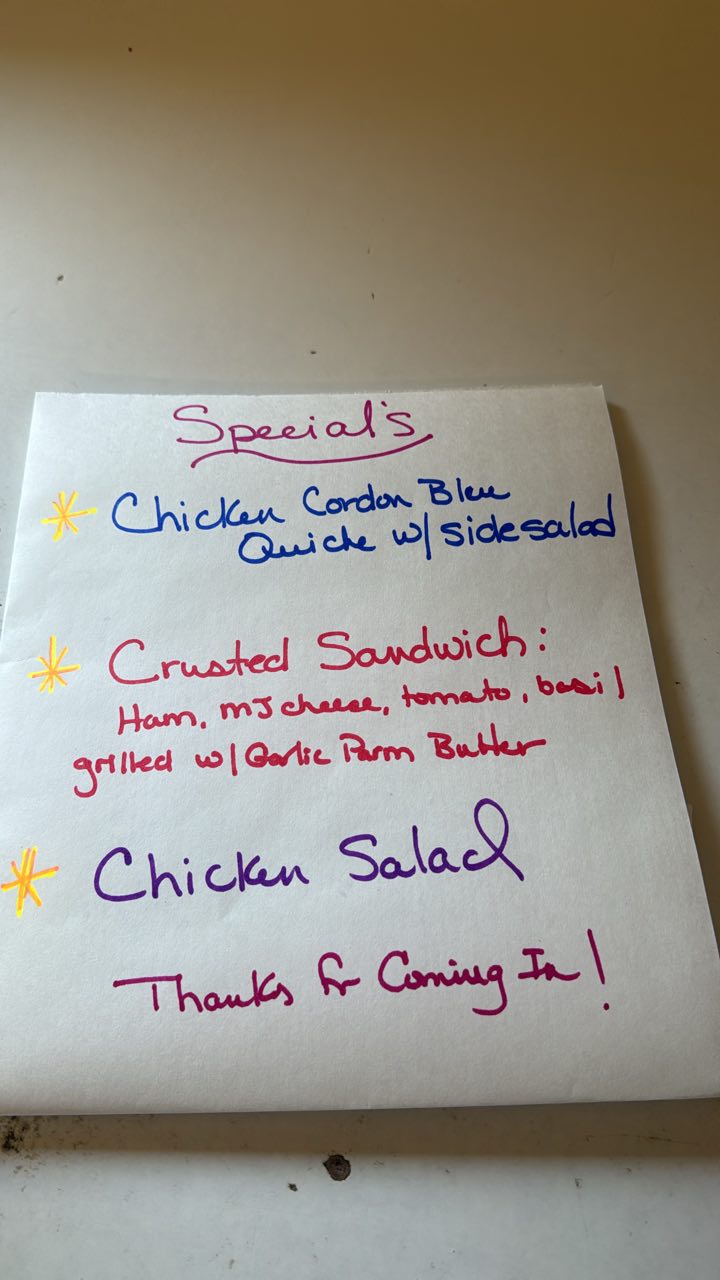 Special's
Chicken Cordon Bleu
Quiche w/ side salad
Crusted Sandwich:
Ham, MJ cheese, tomato, basil
grilled w/ Garlic Parm Butter
Chicken Salad
Thanks for Coming In!